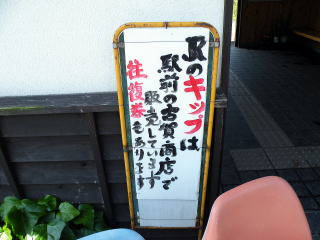 JRのキップは
駅前の古賀商店で
販売しています
往復券もあります